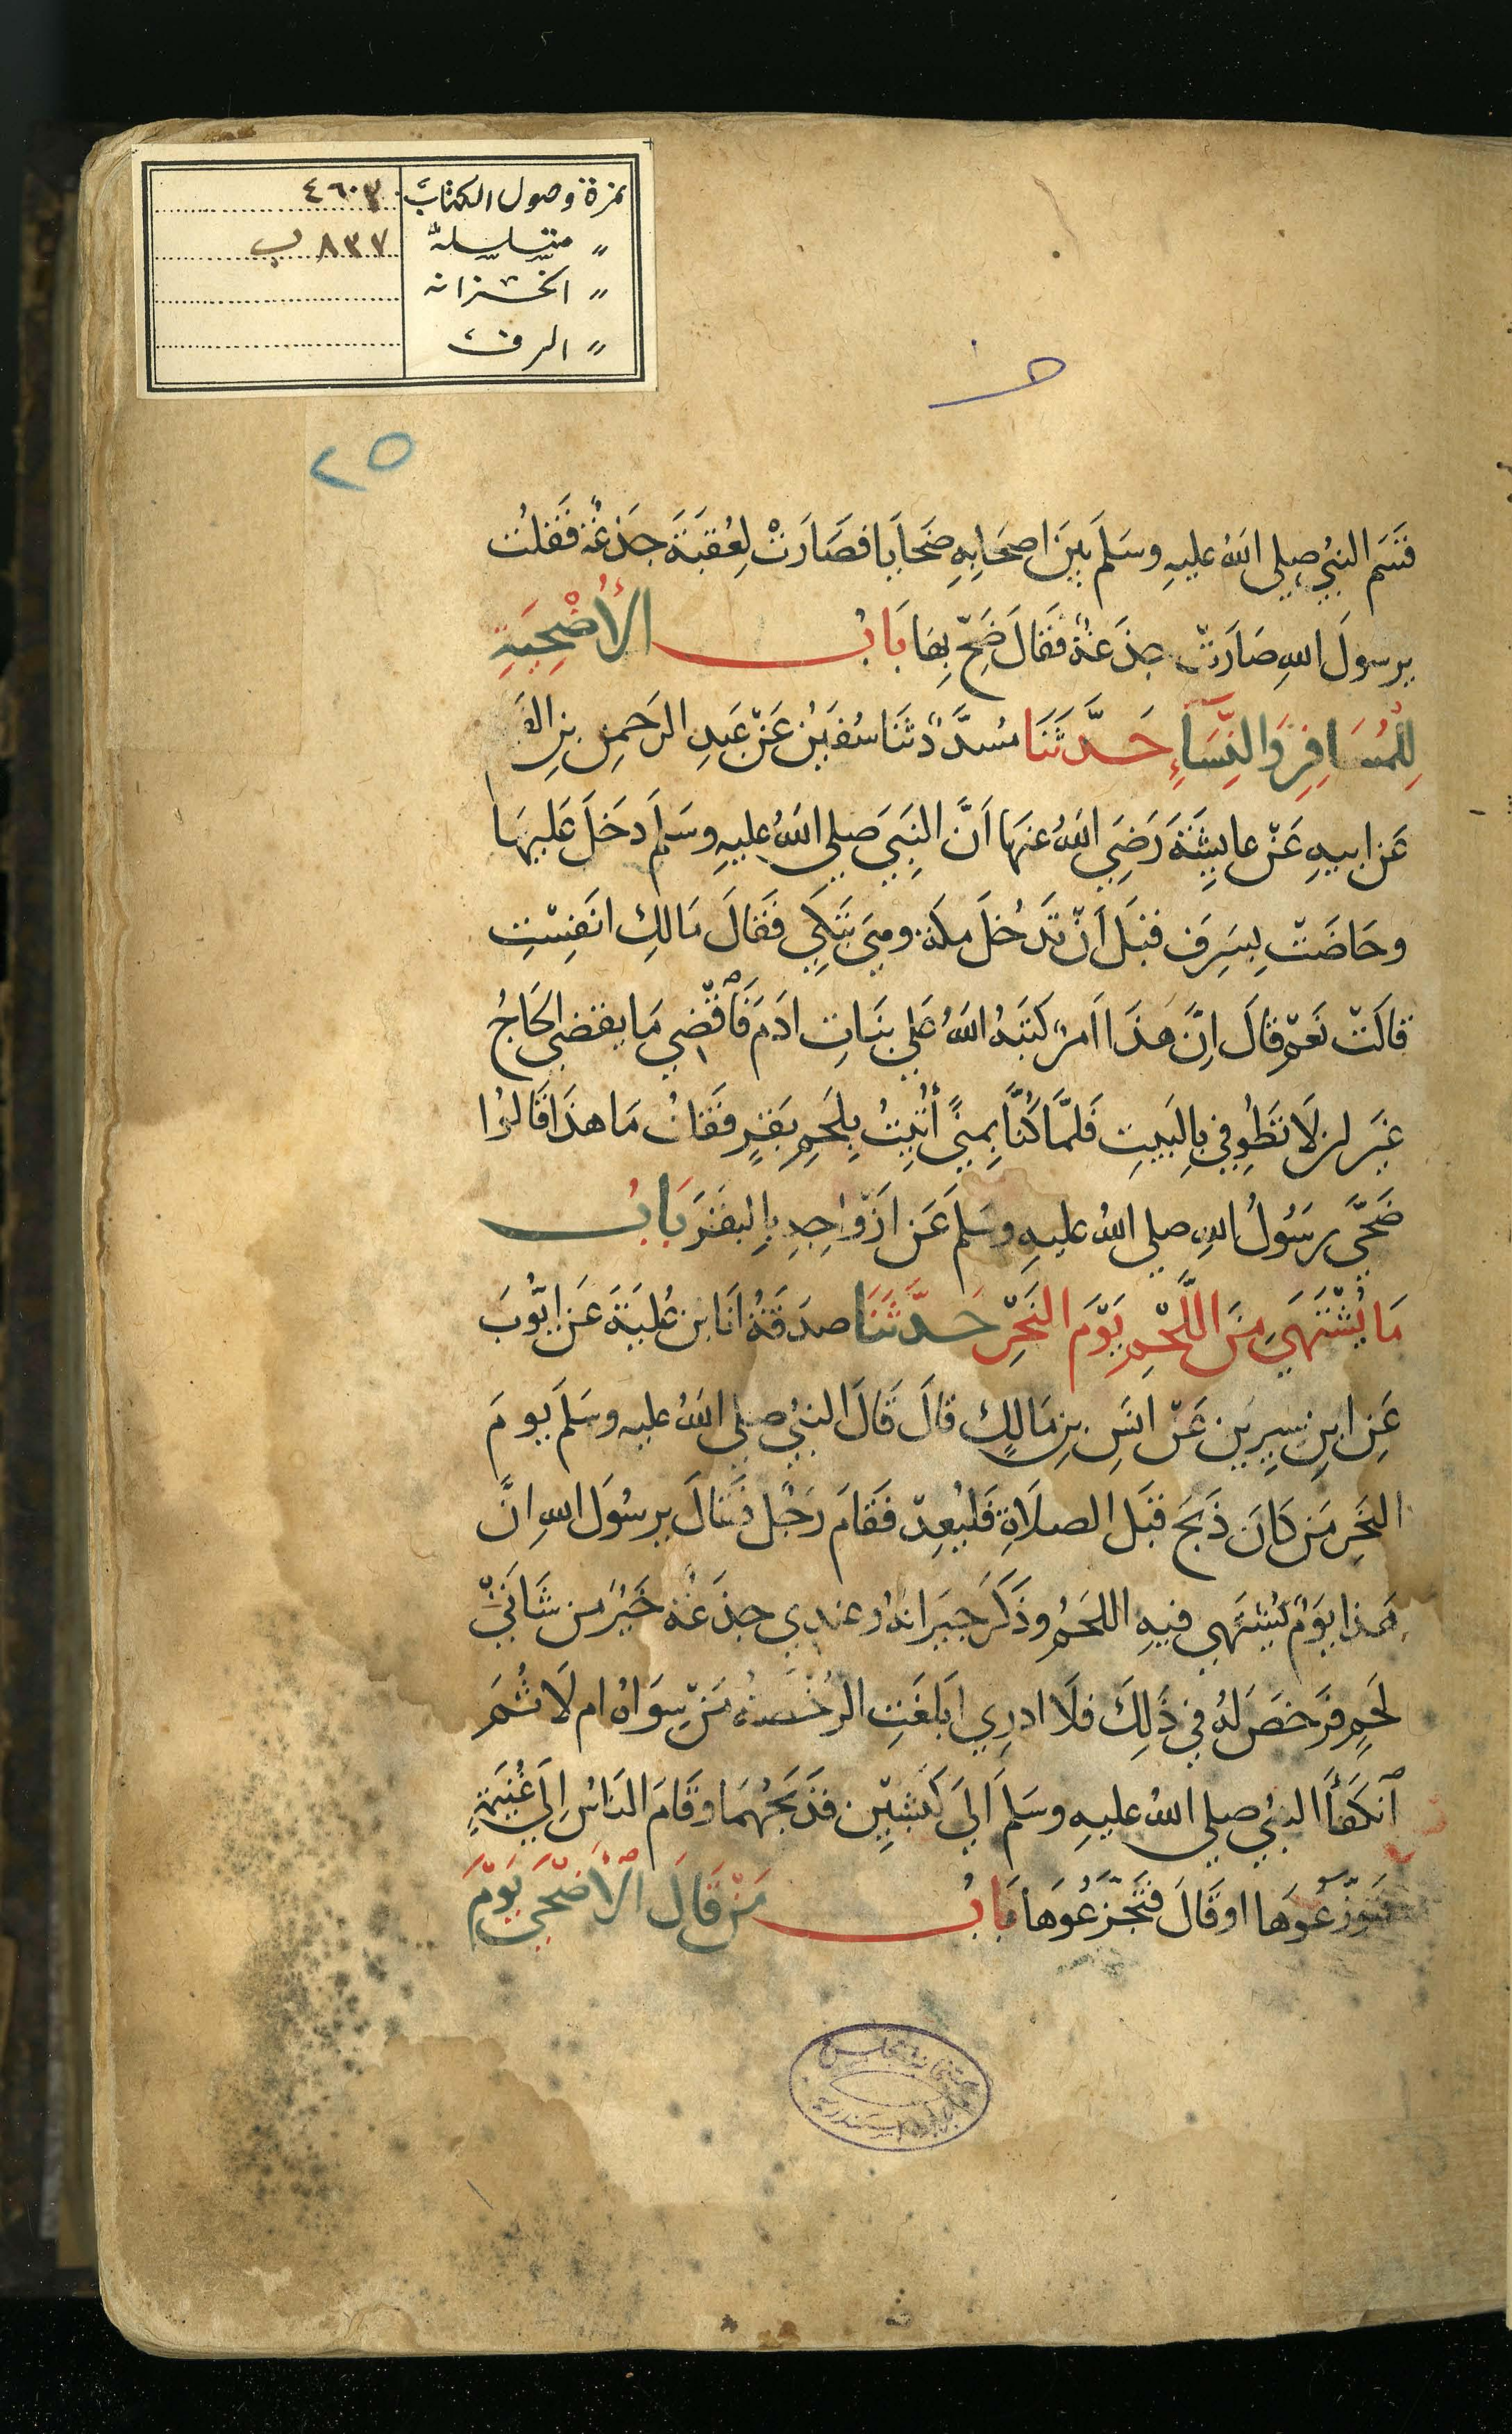 نمرة وصول الكتاب ٤٦٠٧
〃 متسلسلة ٨٣٧ ب
〃 الخزانة
〃 الرف
٢٥
قسَم النبيُ صلى اللهُ عليهِ وسَلمَ بينَ اصحَابِهِ ضَحَايَا فصَارَتْ لِعُقبَةَ جَذعَةٌ فَقلتُ
يرسولَ اللهِ صَارَتْ جذَعَةٌ فَقالَ ضَحِّ بِهَا بَابُ الأُضْحِيَةِ
لِلْمُسَافِرِ وَالنِّسَآءِ حَدَّثَنَا مُسَدَّدٌ ثنَا سُفيٰنُ عَنْ عَبدِ الرَحمنِ بنِ القٰسم
عَن ابيهِ عَنْ عايِشَةَ رَضِيَ اللهُ عنهَا اَنَّ النَبيَ صلى اللهُ عليهِ وسَلمَ دَخَلَ عَليهَا
وحَاضَتْ بِسَرِفَ قبلَ اَنْ تَدخُلَ مكةَ وهيَ تَبكِي فَقالَ مَالكِ انَفِسْتِ
قالَتْ نَعَمْ قالَ اِنَّ هَذَا اَمرٌ كَتبَهُ اللهُ عَلى بنَاتِ ادَمَ فَٱقْضِي مَا يقضى الحَاجُ
غيرَ ان لَا تَطُوفي بِالبَيتِ فَلمَّا كُنَّا بِمِنًى أُتيتُ بِلَحمِ بَقرٍ فَقلتُ مَا هذَا قَالوُا
ضَحَّى رسَوُلُ اللهِ صلى اللهُ عليهِ وسَلمَ عَن ازْوَاجِهِ بِالبقَرَ بَابُ
مَا يُشْتَهَى مِنَ اللَّحْمِ يَوْمَ النَحْرِ حَدَّثَنَا صدَقَةُ انَا ابن عُليَةَ عَن ايُوبَ
عَنِ ابنِ سيرِينَ عَنْ انَسِ بنِ مَالكٍ قالَ قَالَ النبيُ صلى اللهُ عليه وسَلمَ يومَ
النحَرِ مَن كانَ ذَبحَ قبَلَ الصلَاةِ فَليُعِدْ فَقامَ رَجُلٌ فقَالَ يرسوُلَ اللهِ انَّ
هَذا يوَمٌ يُشتَهى فيهِ اللحَمُ وذَكَرَ جيرَانهُ وعندِي جذَعَةٌ خَيرٌ من شَاتَيْ
لَحمٍ فَرخصَ لهُ في ذَلِكَ فلَا ادرِي ابَلغَتِ الرُخصَةُ مَنْ سِوَاهُ ام لَا ثُمَ
ٱنكَفأَ النبيُ صلى اللهُ عليهِ وسَلمَ الىَ كَبشيْنِ فذَبحَهُمَا وقَامَ النَاسُ اِلى غُنيمَةٍ
فتَوَزَّعُوهَا او قَالَ فتَجَزَّعُوهَا بَابُ مَنْ قَالَ ٱلأَضْحَى يَوْمَ